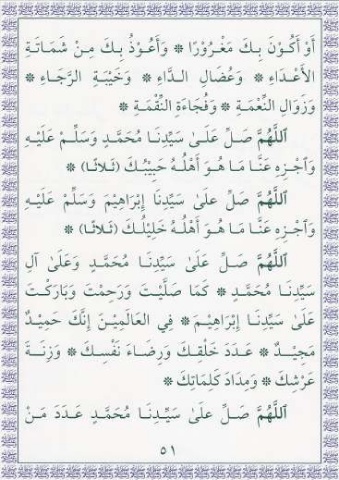 أَوْ أَكُوْنَ بِكَ مَغْرُوْرًا * وَأَعُوْذُ بِكَ مِنْ شَمَاتَةِ
الأَعْدَاءِ * وَعُضَالِ الدَّاءِ * وَخَيْبَةِ الرَّجَاءِ *
وَزَوَالِ النِّعْمَةِ * وَفُجَاءَةِ النِّقْمَةِ *
اَللَّهُمَّ صَلِّ عَلَىٰ سَيِّدِنَا مُحَمَّدٍ وَسَلِّمْ عَلَيْهِ
وَاَجْزِهِ عَنَّا مَا هُوَ أَهْلُهُ حَبِيْبُكَ (ثَلاَثًا) *
اَللَّهُمَّ صَلِّ عَلىٰ سَيِّدِنَا إِبْرَاهِيْمَ وَسَلِّمْ عَلَيْهِ
وَاَجْزِهِ عَنَّا مَا هُوَ أَهْلُهُ خَلِيْلُكَ (ثَلاَثًا) *
اَللَّهُمَّ صَلِّ عَلَىٰ سَيِّدِنَا مُحَمَّدٍ وَعَلَىٰ آلِ
سَيِّدِنَا مُحَمَّدٍ * كَمَا صَلَّيْتَ وَرَحِمْتَ وَبَارَكْتَ
عَلَىٰ سَيِّدِنَا إِبْرَاهِيْمَ * فِي العَالَمِيْنَ إِنَّكَ حَمِيْدٌ
مَجِيْدٌ * عَدَدَ خَلْقِكَ وَرِضَاءَ نَفْسِكَ * وَزِنَةَ
عَرْشِكَ * وَمِدَادَ كَلِمَاتِكَ *
اَللَّهُمَّ صَلِّ عَلَىٰ سَيِّدِنَا مُحَمَّدٍ عَدَدَ مَنْ
٥١